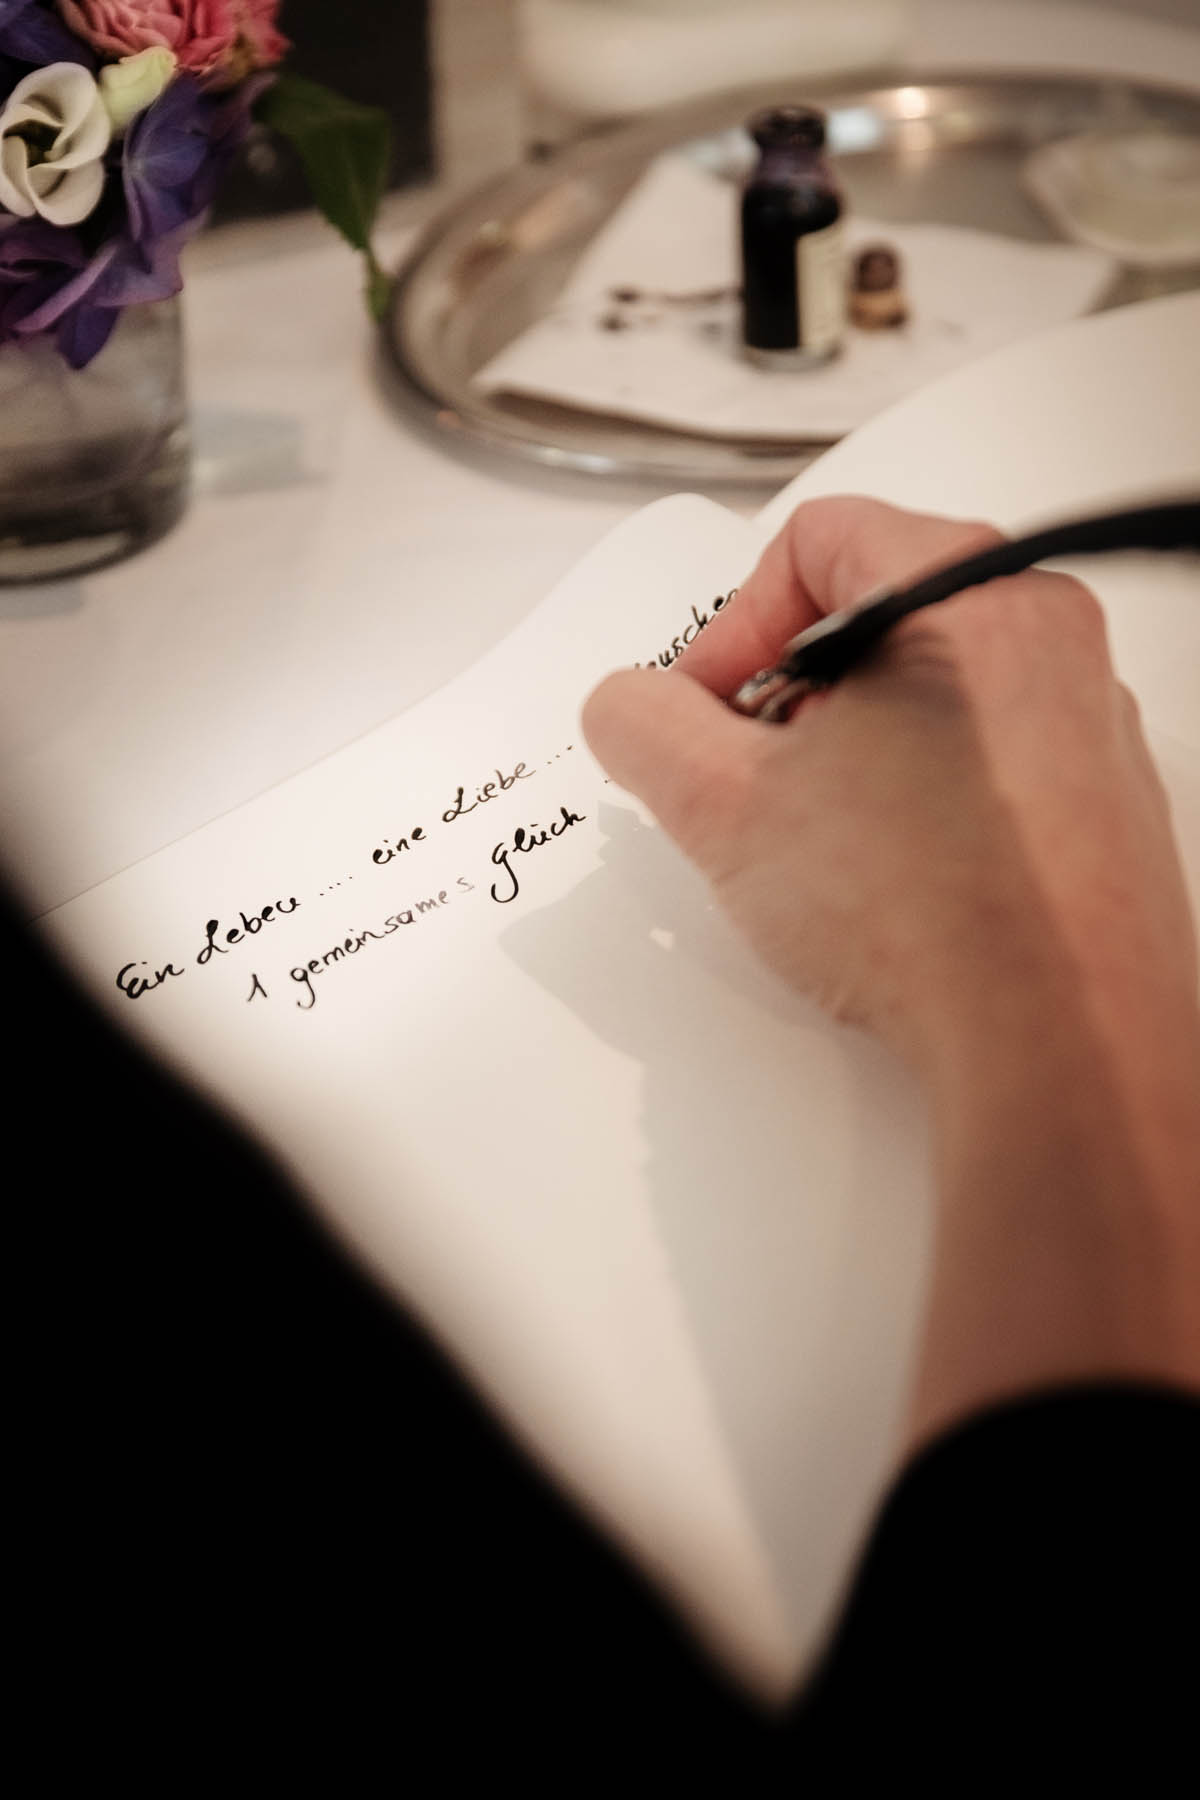 Ein Leben ..... eine Liebe ....
1 gemeinsames glück